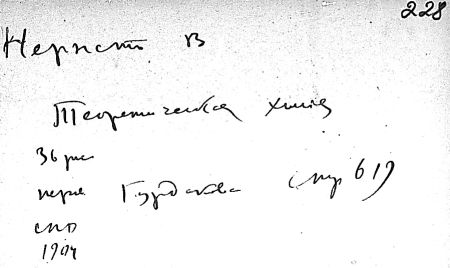 228
Нернст В
Теоретическая химия
перв Бурдакова стр 619
СПб
1904